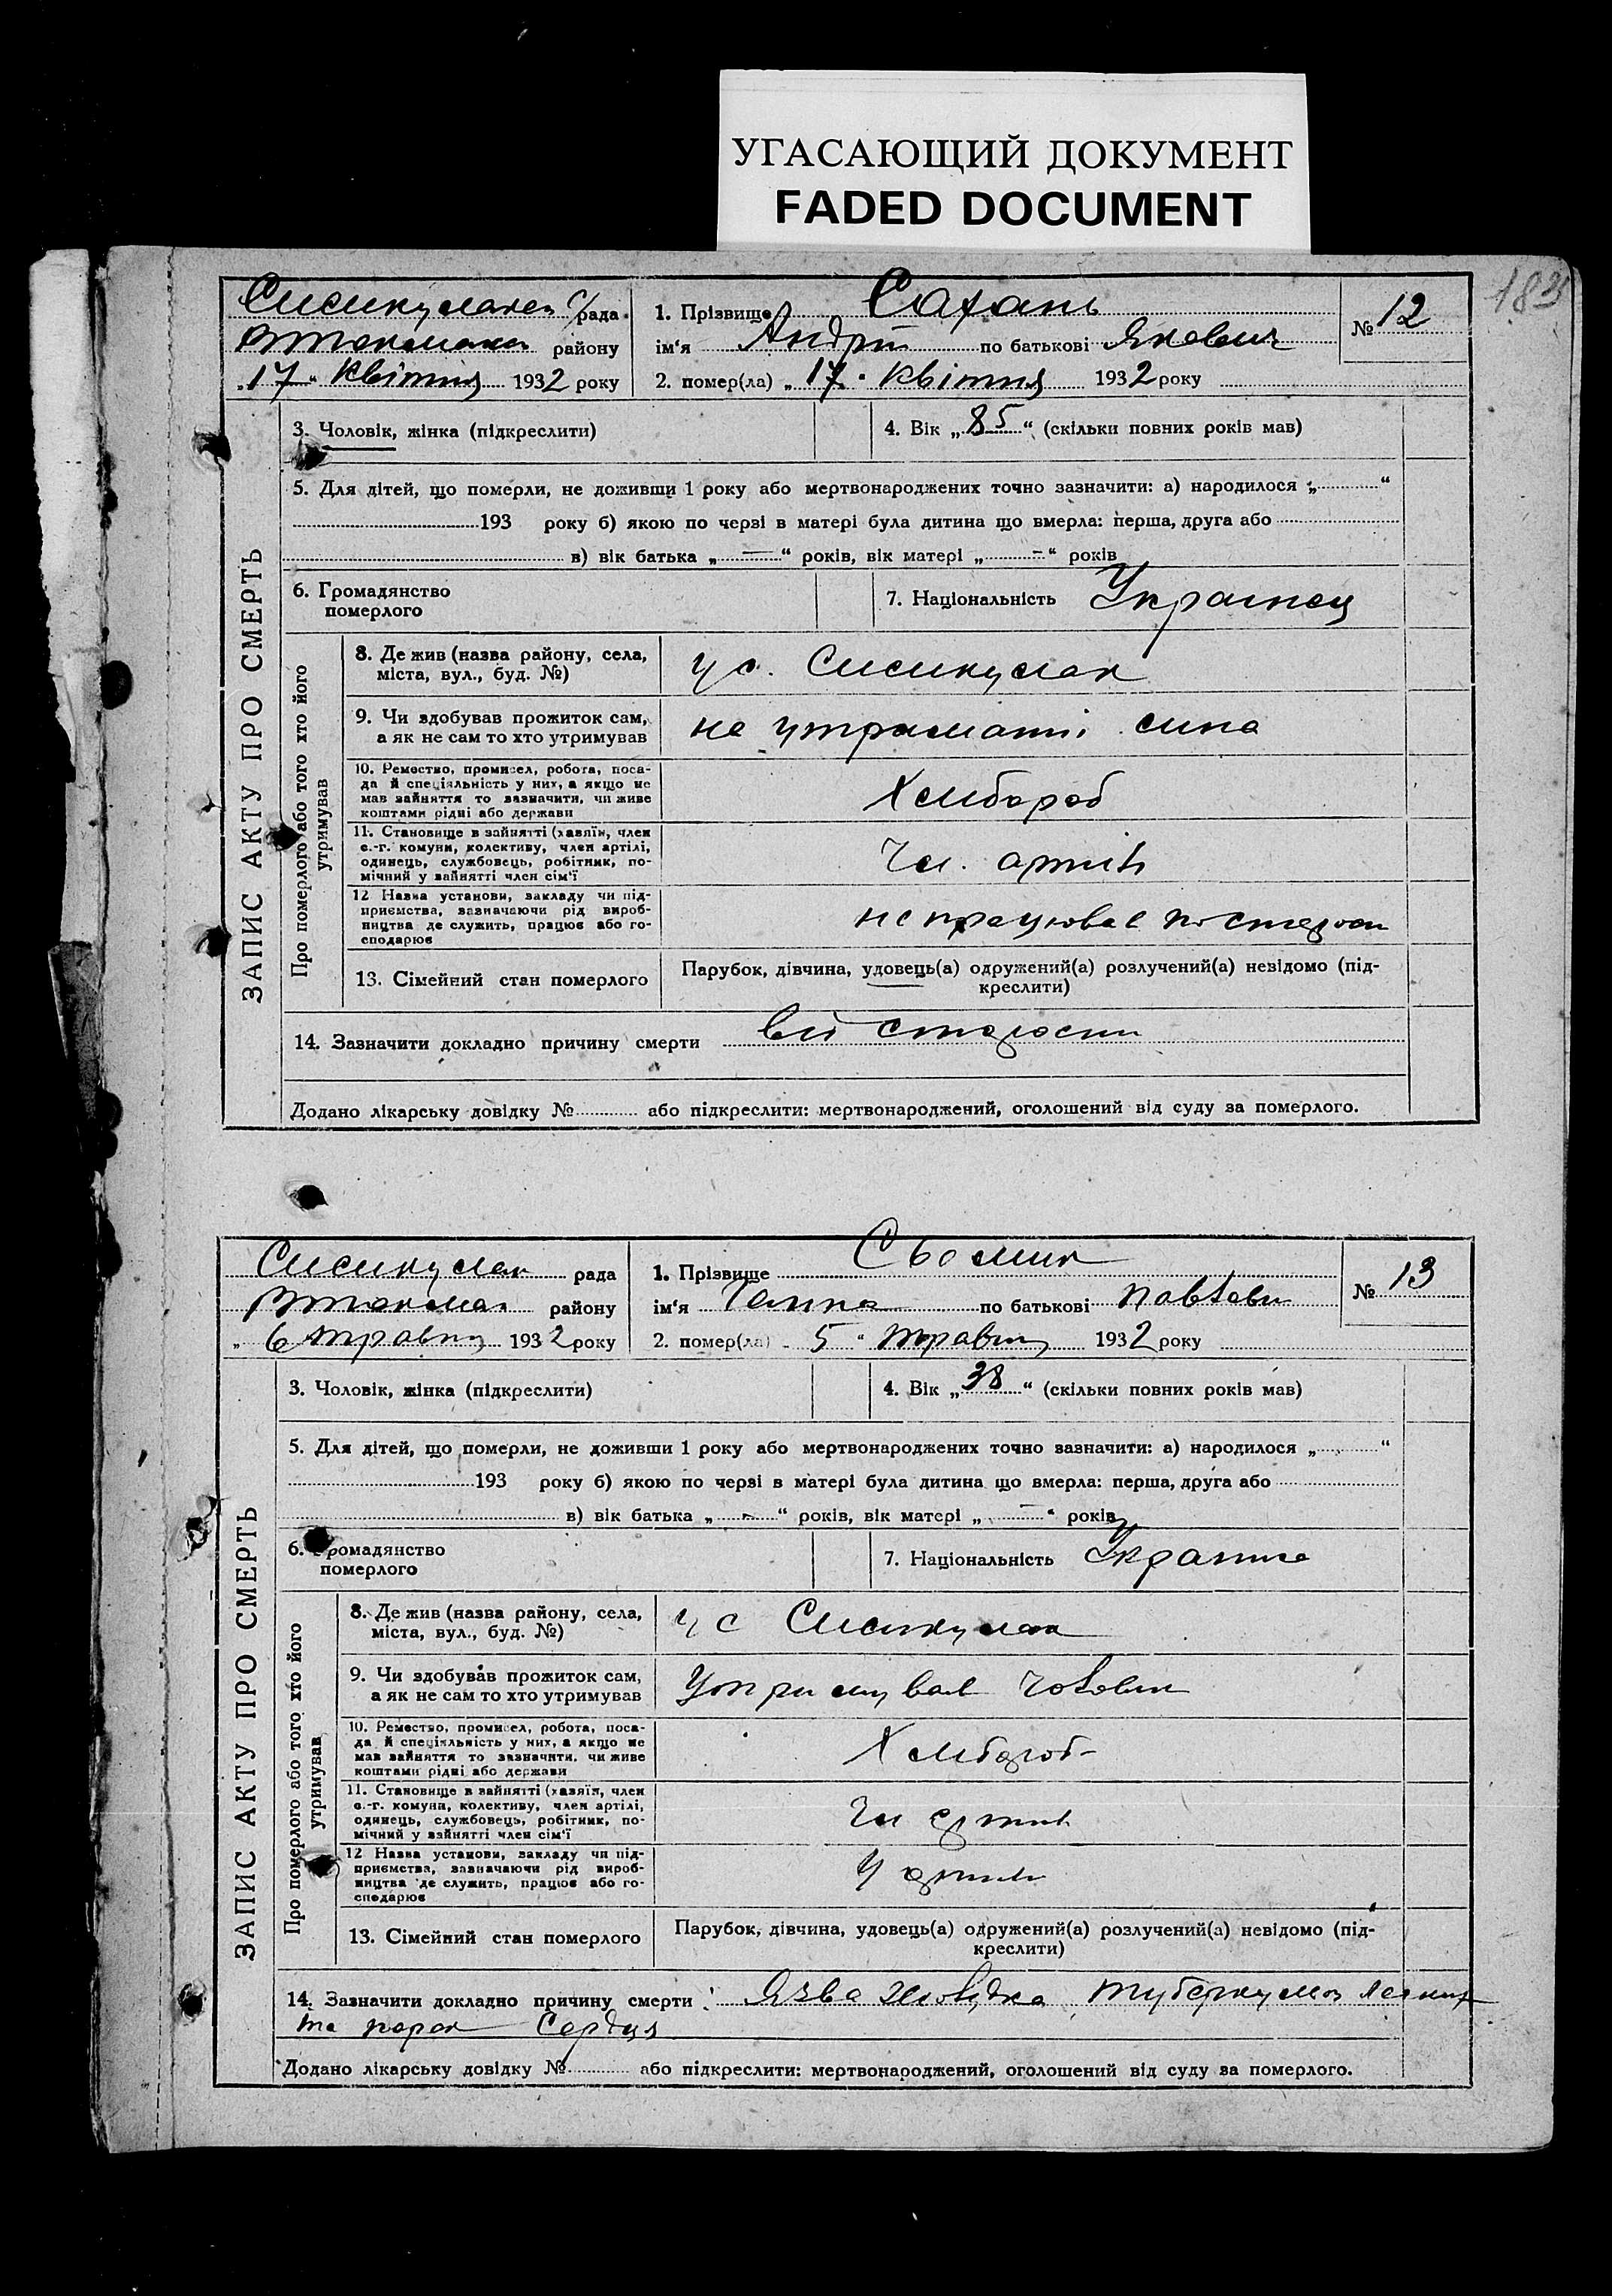 УГАСАЮЩИЙ ДОКУМЕНТ
FADED DOCUMENT
183
ЗАПИС АКТУ ПРО СМЕРТЬ
с/рада
району
„17“ квітня 1932 року
1. Прізвище Сахань
ім‘я Андрій по батькові Якович
№ 12
2. помер(ла) „17“ квітня 1932 року
3. Чоловік, жінка (підкреслити)
4. Вік „85“ (скільки повних років мав)
5. Для дітей, що померли, не доживши 1 року або мертвонароджених точно зазначити: а) народилося „ “
193 року б) якою по черзі в матері була дитина що вмерла: перша, друга або
в) вік батька „—“ років, вік матері „—“ років
6. Громадянство
померлого
7. Національність Украінец
Про померлого або того хто його
утримував
8. Де жив (назва району, села,
міста, вул., буд. №)
у с. Сисикулак
9. Чи здобував прожиток сам,
а як не сам то хто утримував
на утриманні сина
10. Ремество, промисел, робота, поса-
да й спеціяльність у них, а якщо не
мав зайняття то зазначити, чи живе
коштами рідні або держави
Хлибороб
11. Становище в зайнятті (хазяїн, член
с.-г. комуни, колективу, член артілі,
одинець, службовець, робітник, по-
мічний у зайнятті член сім‘ї
Чл. артіті
12 Назва установи, закладу чи під-
приємства, зазначаючи рід вироб-
ництва де служить, працює або го-
сподарює
не працював по старости
13. Сімейний стан померлого
Парубок, дівчина, удовець(а) одружений(а) розлучений(а) невідомо (під-
креслити)
14. Зазначити докладно причину смерти від старости
Додано лікарську довідку № або підкреслити: мертвонароджений, оголошений від суду за померлого.
ЗАПИС АКТУ ПРО СМЕРТЬ
Сисикулак рада
району
„6 травня 1932 року
1. Прізвище Сьомик
ім‘я Ганна по батькові
№ 13
2. помер(ла) 5 “ травня 1932 року
3. Чоловік, жінка (підкреслити)
4. Вік „38“ (скільки повних років мав)
5. Для дітей, що померли, не доживши 1 року або мертвонароджених точно зазначити: а) народилося „ “
193 року б) якою по черзі в матері була дитина що вмерла: перша, друга або
в) вік батька „—“ років, вік матері „—“ років
6. Громадянство
померлого
7. Національність Украінка
Про померлого або того хто його
утримував
8. Де жив (назва району, села,
міста, вул., буд. №)
у с Сисикулак
9. Чи здобував прожиток сам,
а як не сам то хто утримував
Утримував чоловик
10. Ремество, промисел, робота, поса-
да й спеціяльність у них, а якщо не
мав зайняття то зазначити, чи живе
коштами рідні або держави
Хлибороб
11. Становище в зайнятті (хазяїн, член
с.-г. комуни, колективу, член артілі,
одинець, службовець, робітник, по-
мічний у зайнятті член сім‘ї
Чл артилі
12 Назва установи, закладу чи під-
приємства, зазначаючи рід вироб-
ництва де служить, працює або го-
сподарює
У артили
13. Сімейний стан померлого
Парубок, дівчина, удовець(а) одружений(а) розлучений(а) невідомо (під-
креслити)
14. Зазначити докладно причину смерти Язва жолудка, туберкульоз легких
та порок Сердця
Додано лікарську довідку № або підкреслити: мертвонароджений, оголошений від суду за померлого.